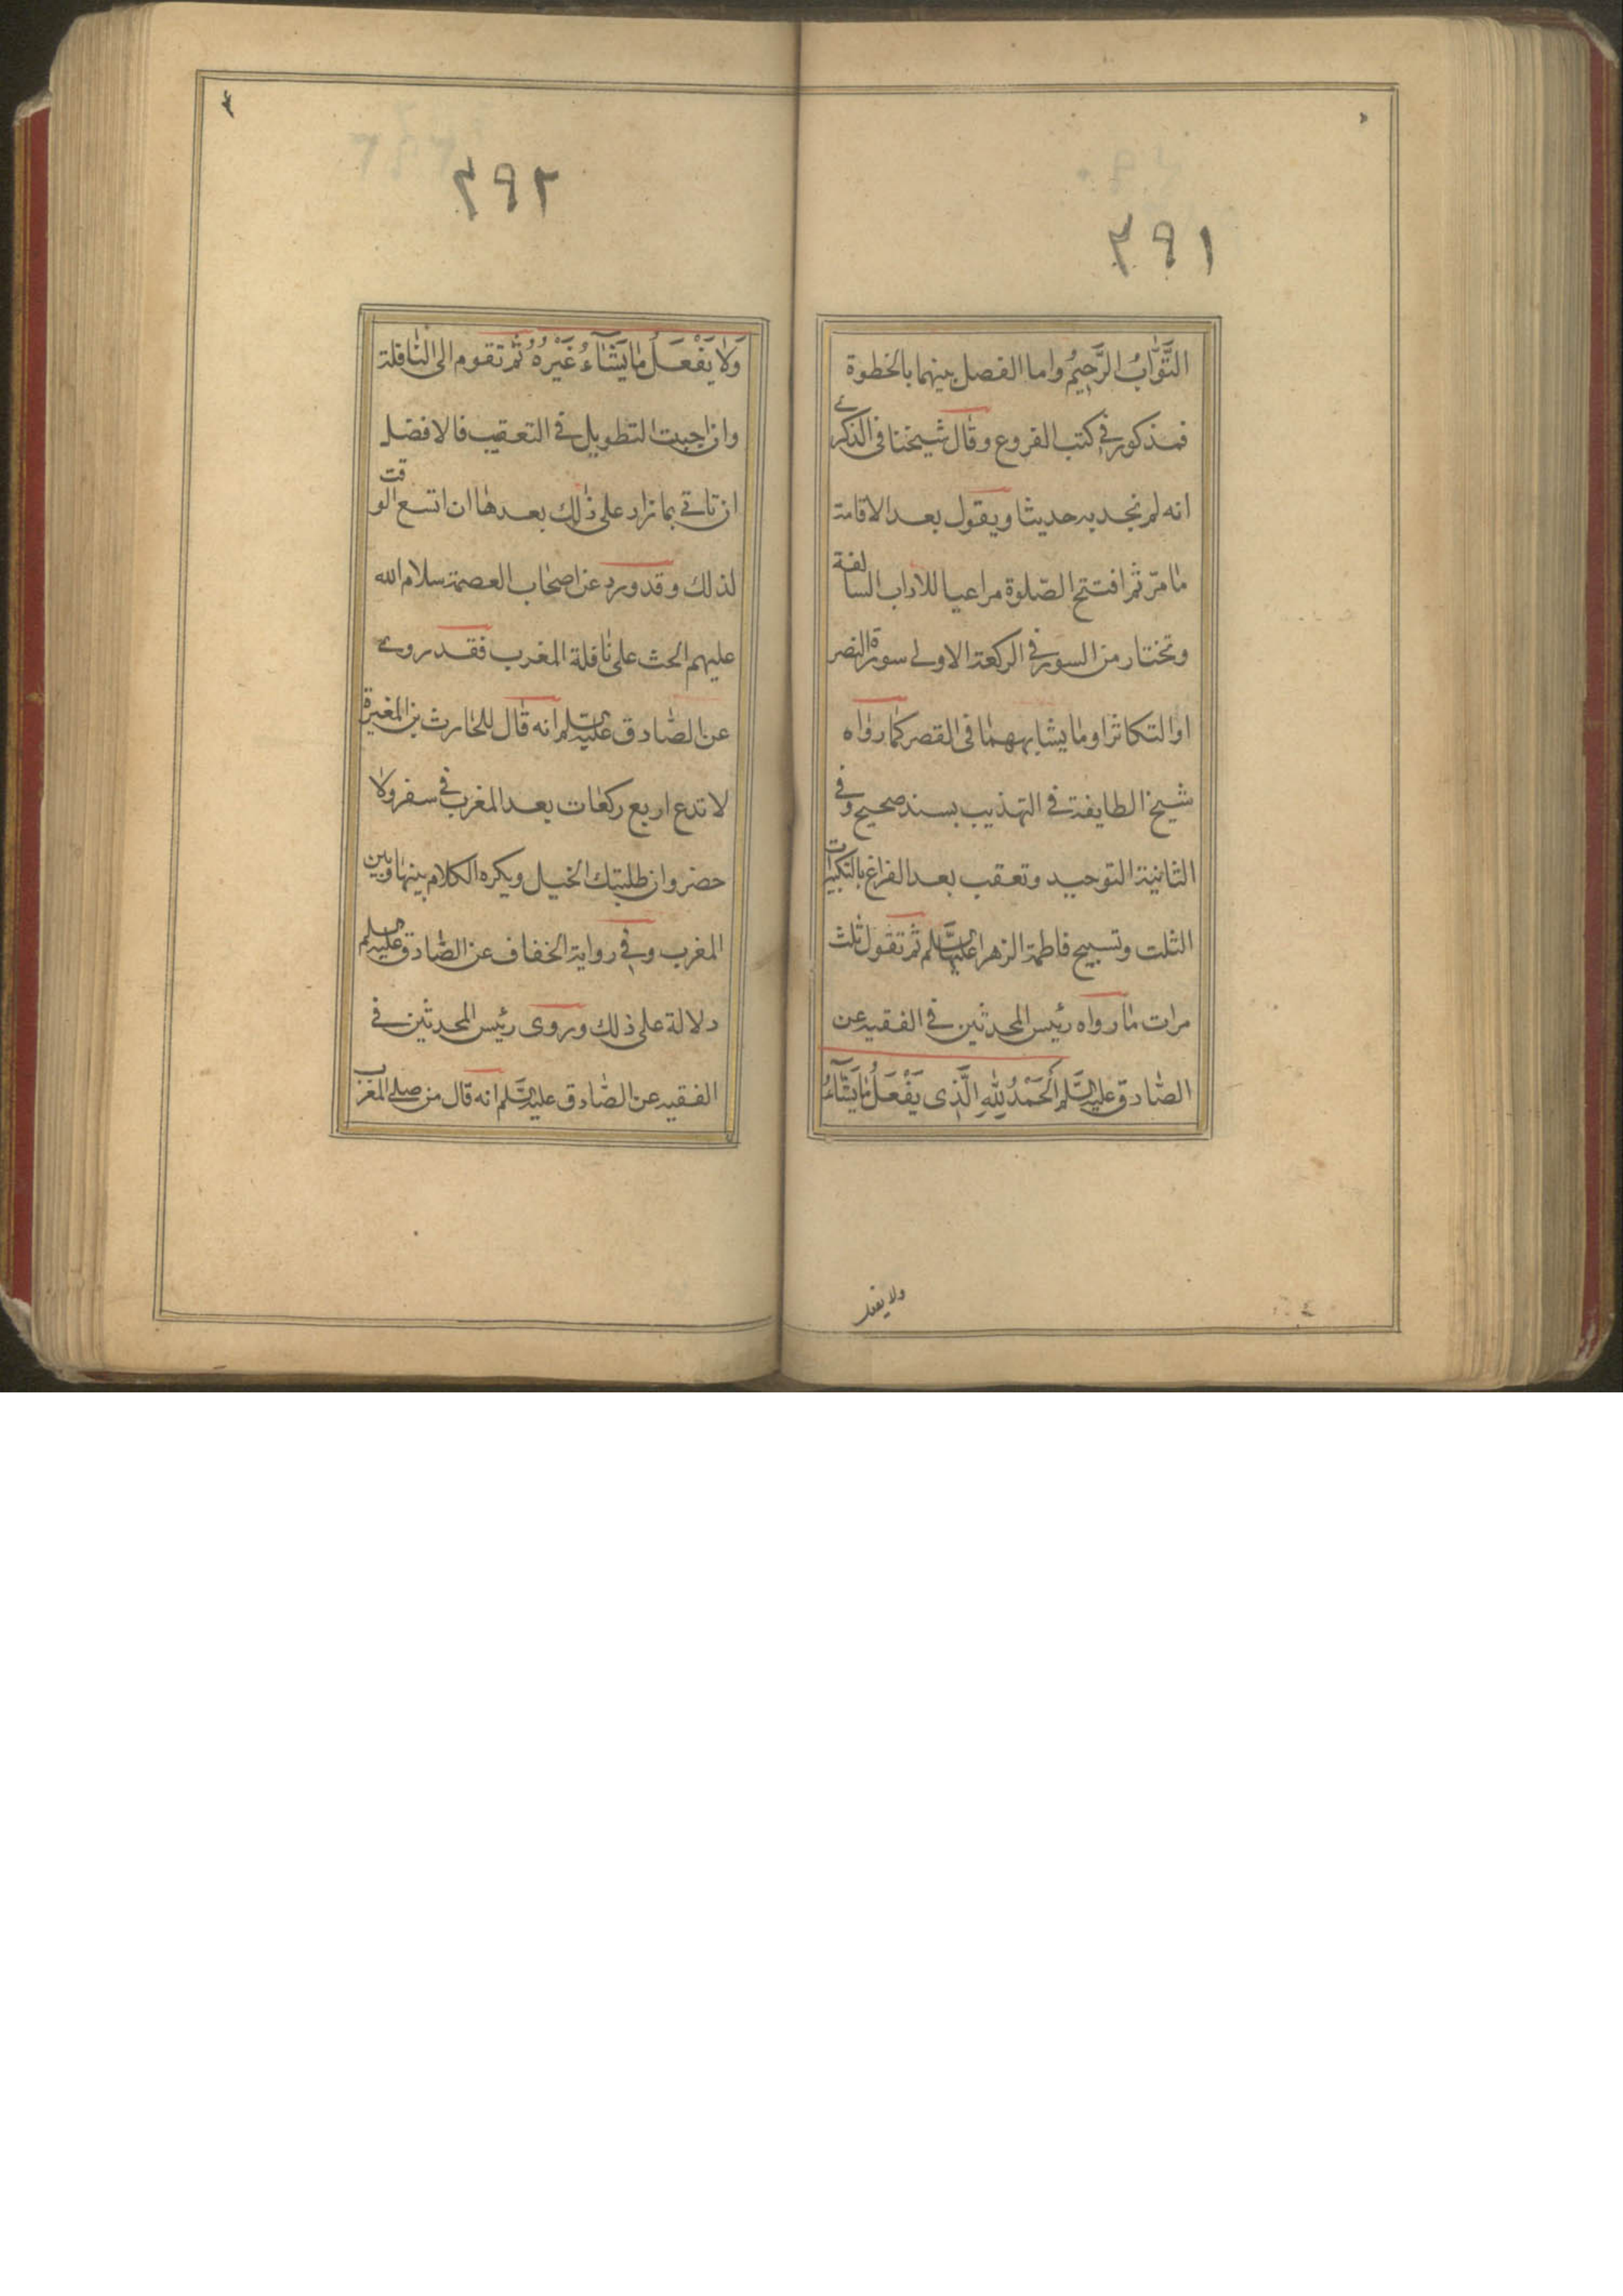 ٣٩١
التَّوَّابُ الرَّحِيمُ واما الفصل بينهما بالخطوة
فمذكور في كتب الفروع وقال شيخنا فى الذكرى
انه لم نجد به حديثا ويقول بعد الاقامة
ما مرّ ثم افتتح الصّلوة مراعيا للاداب السالفة
وتختار من السور في الركعة الاولى سورة النصر
او التكاثر او ما يشابههما فى القصر كما رواه
شيخ الطايفة في التهذيب بسند صحيح وفي
الثانية التوحيد وتعقب بعد الفراغ بالتكبيرات
الثلث وتسبيح فاطمة الزهرا عليها السّلم ثم تقول ثلث
مرات ما رواه رئيس المحدثين في الفقيه عن
الصّادق عليه السّلم اَلْحَمْدُ لِلّٰهِ الَّذِى يَفْعَلُ مَا يَشَآءُ
ولا يفعل
٣٩٢
وَلَا يَفْعَلُ مَا يَشَآءُ غَيْرُهُ ثم تقوم الى النافلة
وان احببت التطويل في التعقيب فالافضل
ان تاتي بما زاد على ذلك بعدها ان اتسع الوقت
لذلك وقد ورد عن اصحاب العصمة سلام الله
عليهم الحث على نافلة المغرب فقد روى
عن الصّادق عليه السلم انه قال للحارث بن المغيرة
لا تدع اربع ركعات بعد المغرب في سفر ولا
حضر وان طلبتك الخيل ويكره الكلام بينها وبين
المغرب وفي رواية الخفاف عن الصّادق عليه السلم
دلالة على ذلك وروى رئيس المحدثين في
الفقيه عن الصّادق عليه السَّلم انه قال من صلى المغرب